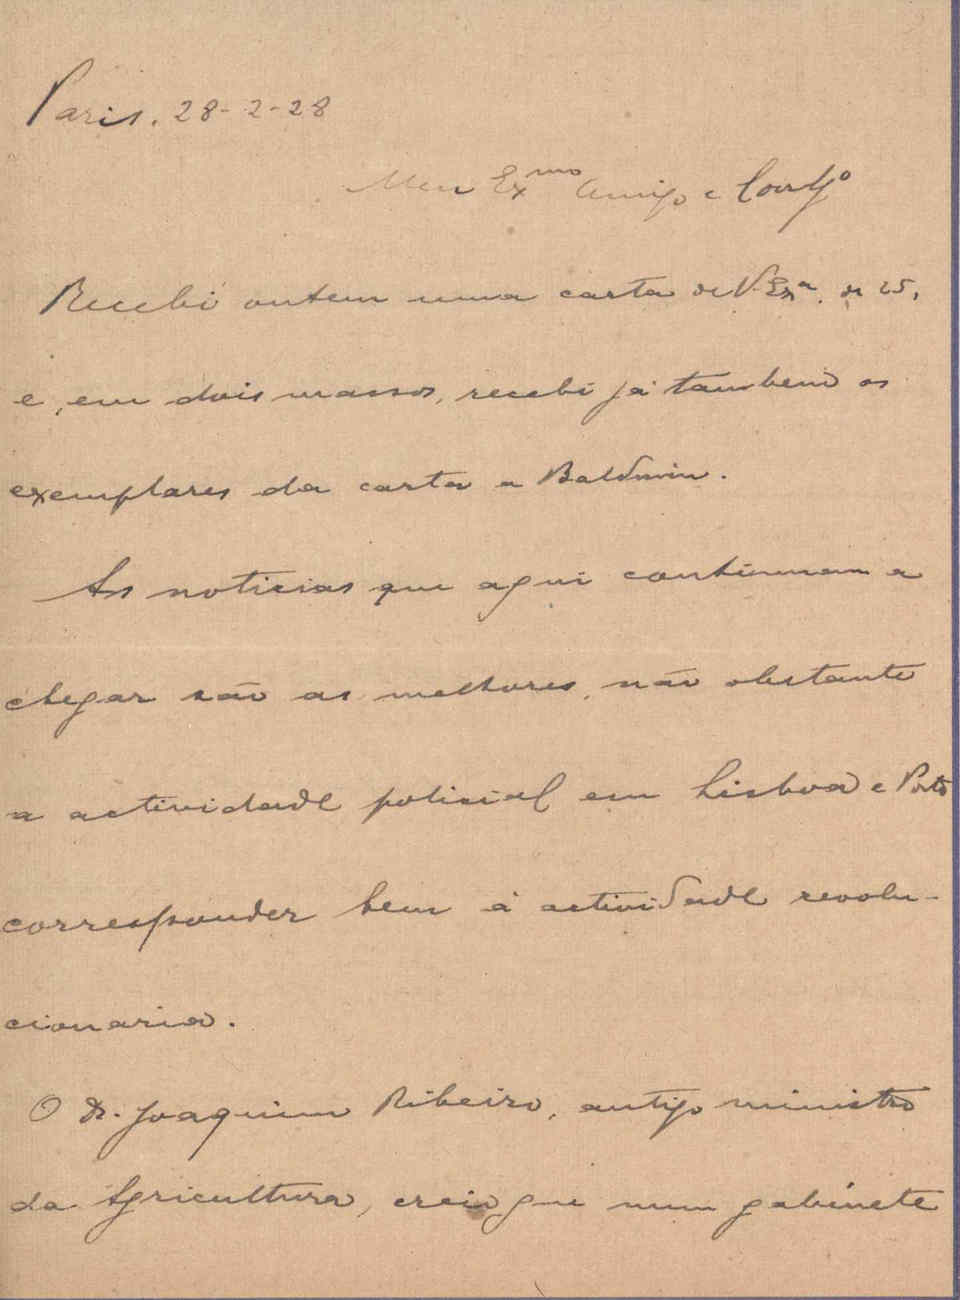 Paris. 28-2-28
Meu Ex.mo Amigo e Corrg.o
Recebi ontem uma carta de V. Ex.a. de 25,
e, em dois massos, recebi já tambem os
exemplares da carta a Baldwin.
As noticias que aqui continuam a
chegar são as melhores, não obstante
a actividade policial em Lisboa e Porto
corresponder bem á actividade revolu-
cionaria.
O Dr. Joaquim Ribeiro, antigo ministro
da Agricultura, creio que num gabinete